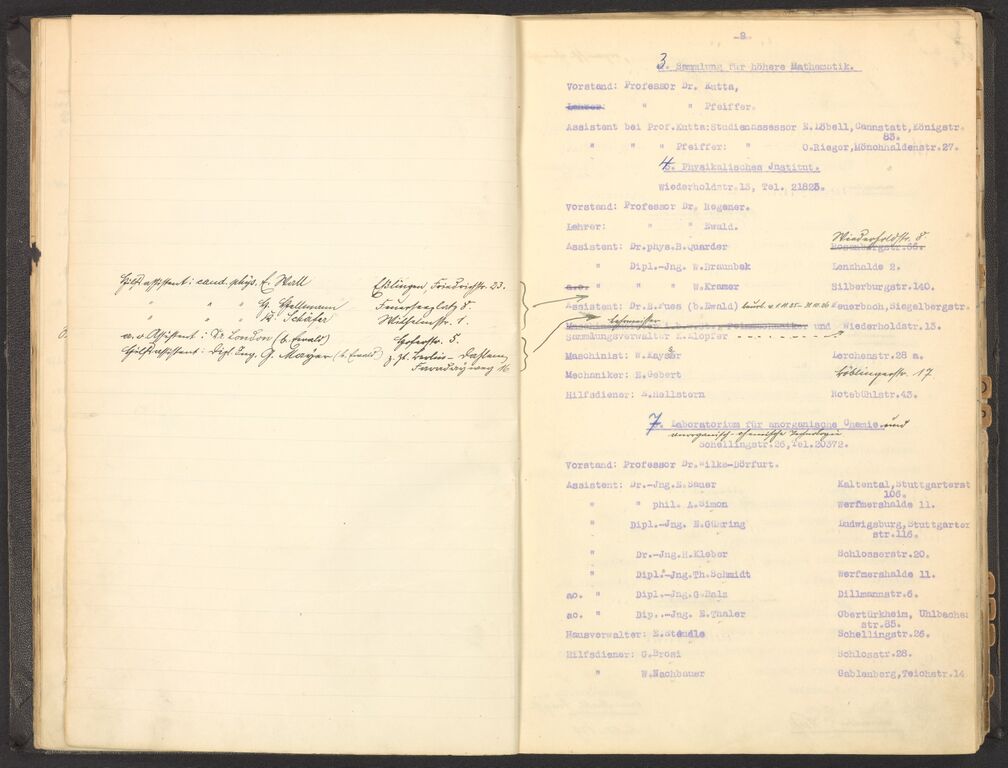 Hilfsassistent: cand. phys. E. Wall Eßlingen Friedrichstr. 23.
" " " G. Hellmann Feuerseeplatz 8.
" " " W. Schäfer Wilhelmstr. 1.
a. o. Assistent: Dr. London (b. Ewald) Hoferstr. 5.
Hilfsassistent: Dipl. Ing. G. Mayer (b. Ewald) z. Zt. Berlin-Dahlem
Faradayweg 16
-8-
3. Sammlung für höhere Mathematik.
Vorstand: Professor Dr. Kutta,
Lehrer: " " Pfeiffer.
Assistent bei Prof.Kutta:Studienassessor E.Löbell,Cannstatt,Königstr.
83.
" " " Pfeiffer: " O.Rieger,Mönchhaldenstr.27.
4. Physikalisches Jnstitut.
Wiederholdstr.13, Tel. 21823.
Vorstand: Professor Dr. Regener.
Lehrer: " " Ewald.
Wiederholdstr. 8
Assistent: Dr.phys.B.Quarder Rosenbergstr.66.
" Dipl.-Jng. W.Braunbek Lenzhalde 2.
a.o. " " " W.Kramer Silberburgstr.140.
Assistent: Dr.E.Fues (b.Ewald) Feuerbach,Siegelbergstr.
und Wiederholdstr.13.
Sammlungsverwalter K.Klopfer - - - - - - - - ?
Maschinist: W.Kayser Lerchenstr.28 a.
Mechaniker: E.Gebert Böblingerstr. 17
Hilfsdiener: E.Hellstern Rotebühlstr.43.
7. Laboratorium für anorganische Chemie und
anorganisch-chemische Technologie
Schellingstr.26,Tel.20372.
Vorstand: Professor Dr.Wilke-Dörfurt.
Assistent: Dr.-Jng.E.Sauer Kaltental,Stuttgarterst
106.
" " phil. A.Simon Werfmershalde 11.
" Dipl.-Jng. E.Gühring Ludwigsburg,Stuttgarter
str.116.
" Dr.-Jng.H.Kleber Schlosserstr.20.
" Dipl.-Jng.Th.Schmidt Werfmershalde 11.
ao. " Dipl.-Jng.G.Balz Dillmannstr.6.
ao. " Dip.-Jng. E.Thaler Obertürkheim, Uhlbacher
str.85.
Hausverwalter: E.Steudle Schellingstr.26.
Hilfsdiener: G.Brosi Schlosstr.28.
" W.Nachbauer Gablenberg,Teichstr.14